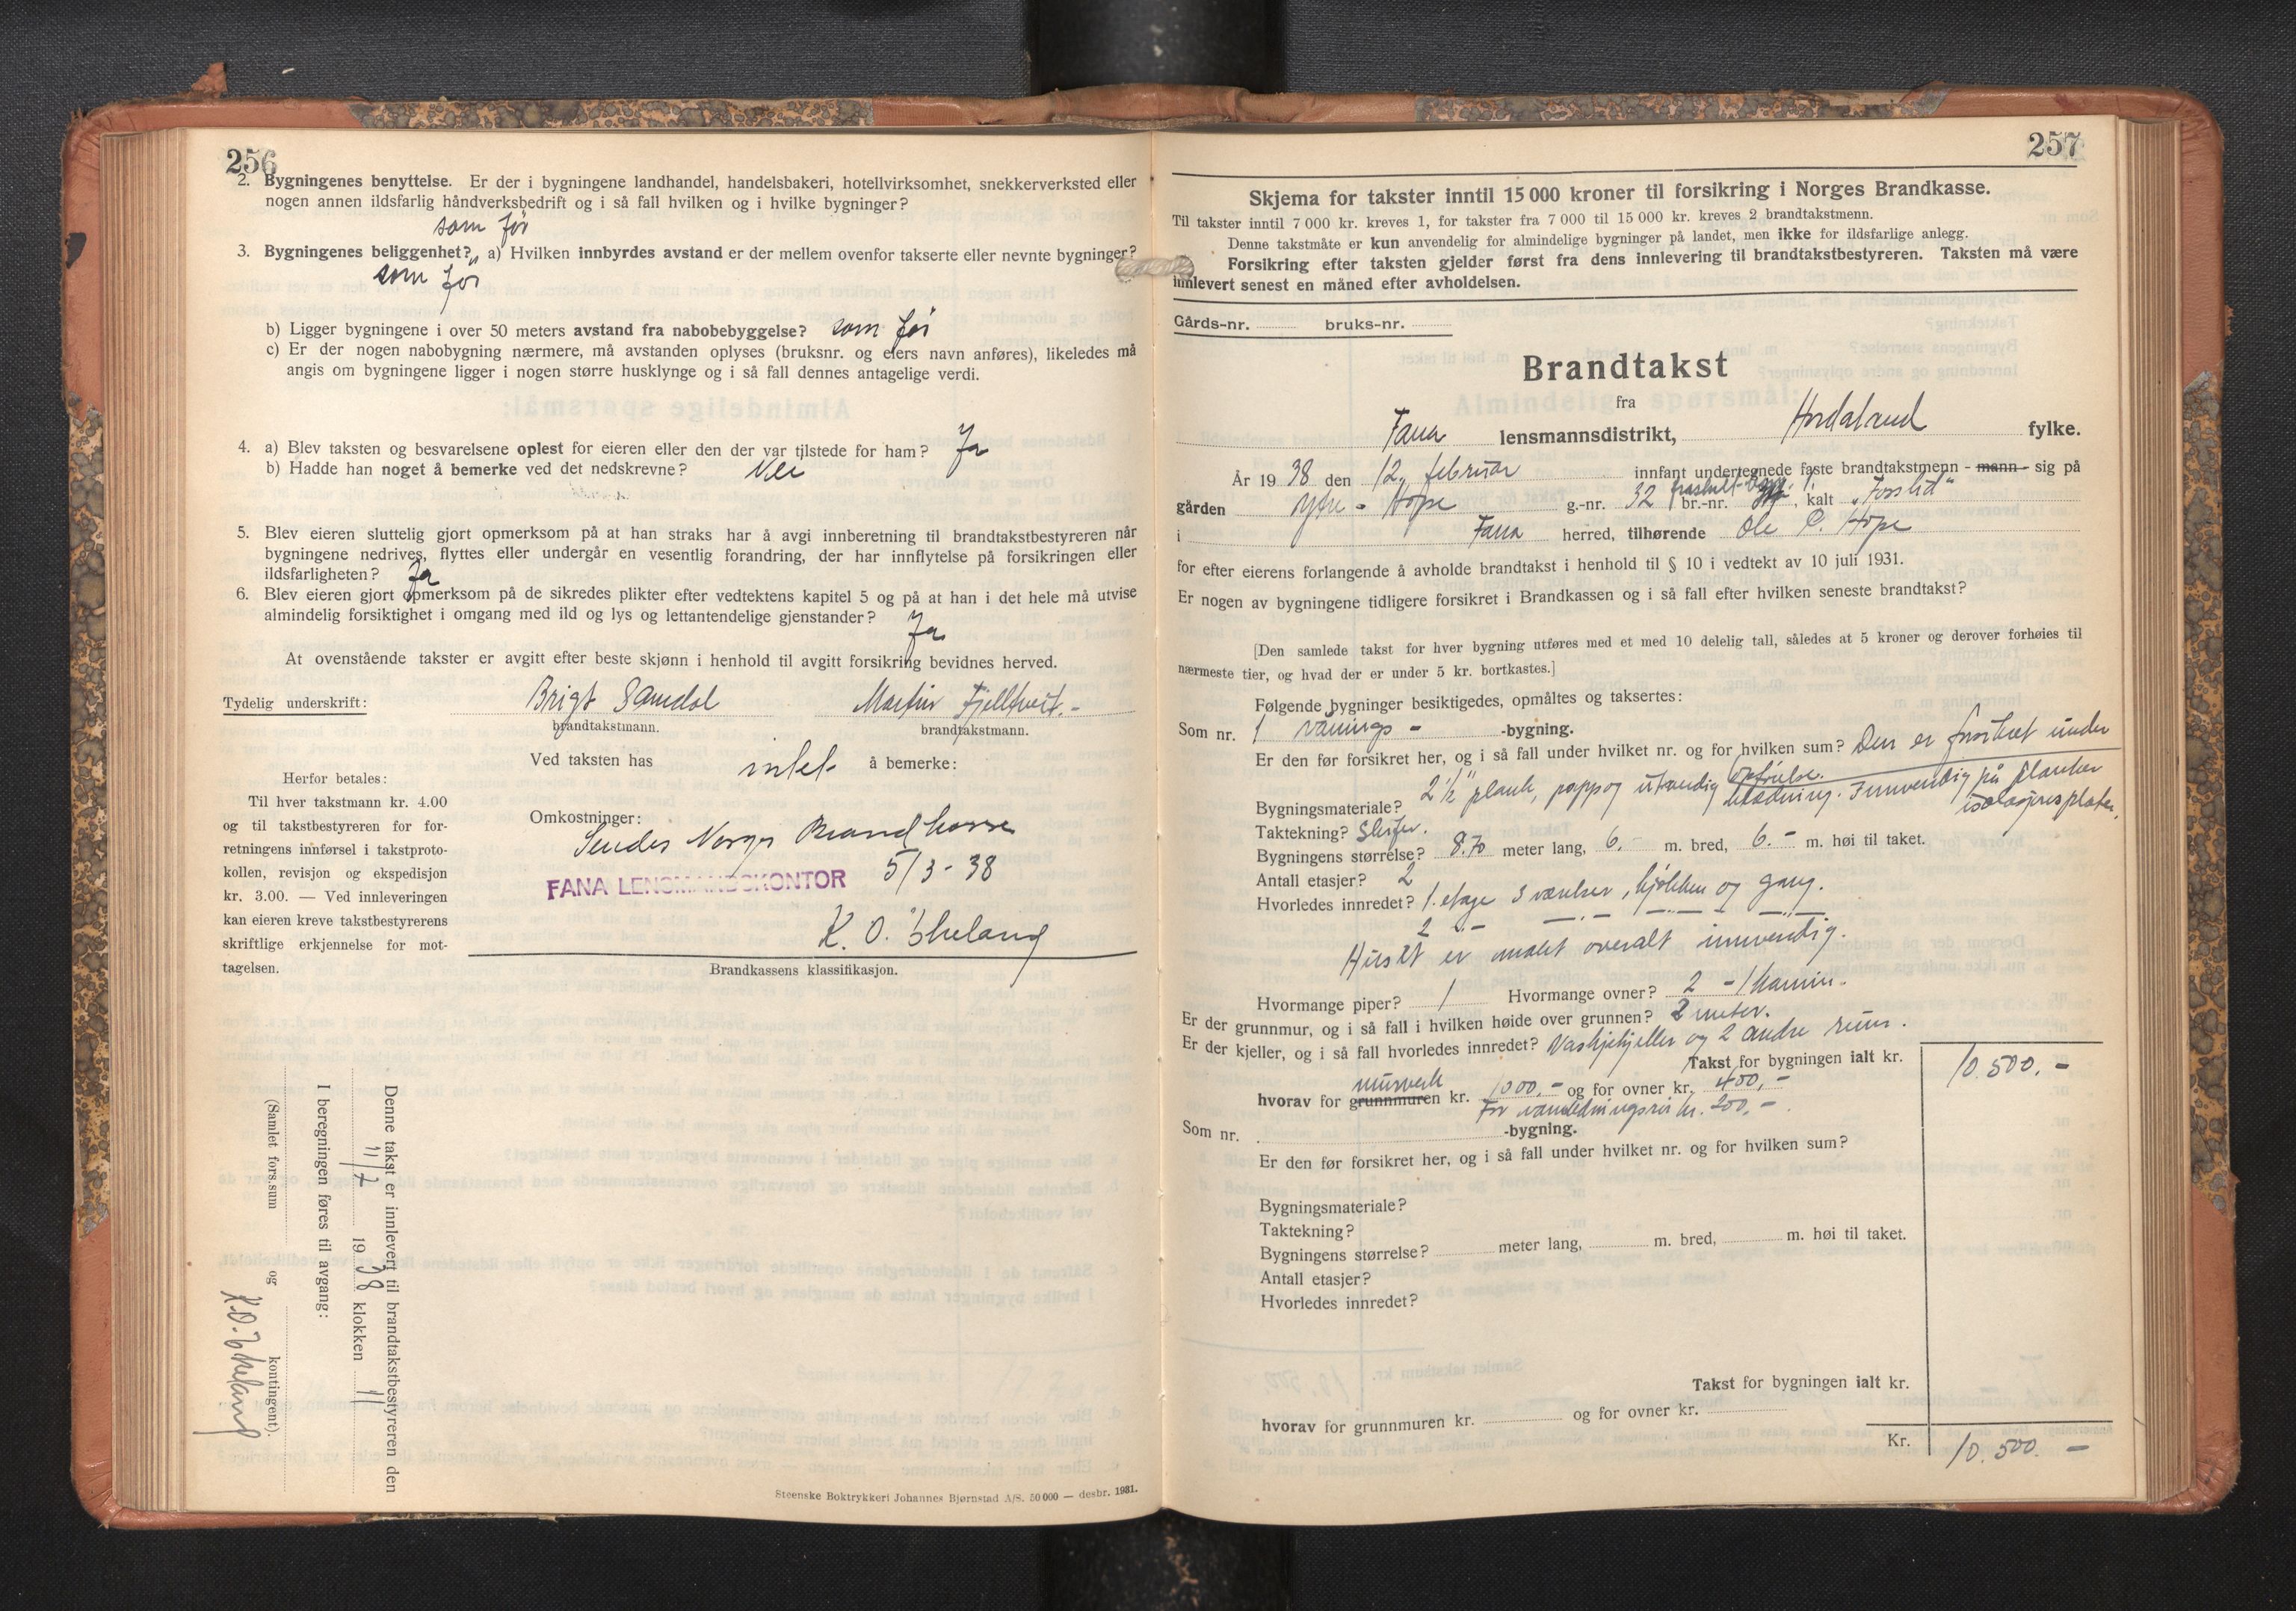 256
2. Bygningenes benyttelse. Er der i bygningene landhandel, handelsbakeri, hotellvirksomhet, snekkerverksted eller
nogen annen ildsfarlig håndverksbedrift og i så fall hvilken og i hvilke bygninger?
som før
3. Bygningenes beliggenhet? a) Hvilken innbyrdes avstand er der mellem ovenfor takserte eller nevnte bygninger?
som før
b) Ligger bygningene i over 50 meters avstand fra nabobebyggelse? som før
c) Er der nogen nabobygning nærmere, må avstanden oplyses (bruksnr. og eiers navn anføres), likeledes må
angis om bygningene ligger i nogen større husklynge og i så fall dennes antagelige verdi.
4. a) Blev taksten og besvarelsene oplest for eieren eller den der var tilstede for ham? Ja
b) Hadde han noget å bemerke ved det nedskrevne? Nei
5. Blev eieren sluttelig gjort opmerksom på at han straks har å avgi innberetning til brandtakstbestyreren når
bygningene nedrives, flyttes eller undergår en vesentlig forandring, der har innflytelse på forsikringen eller
ildsfarligheten? Ja
6. Blev eieren gjort opmerksom på de sikredes plikter efter vedtektens kapitel 5 og på at han i det hele må utvise
almindelig forsiktighet i omgang med ild og lys og lettantendelige gjenstander? Ja
At ovenstående takster er avgitt efter beste skjønn i henhold til avgitt forsikring bevidnes herved.
Tydelig underskrift: Brigt Samdal Martin Fjelltveit.-
brandtakstmann. brandtakstmann.
Ved taksten has intet å bemerke:
Herfor betales:
Til hver takstmann kr. 4.00
og til takstbestyreren for for-
retningens innførsel i takstproto-
kollen, revisjon og ekspedisjon
kr. 3.00. — Ved innleveringen
kan eieren kreve takstbestyrerens
skriftlige erkjennelse for mot-
tagelsen.
Omkostninger:
Sendes Norges Brandkasse
FANA LENSMANDSKONTOR 5/3-38
K. O.
Brandkassens klassifikasjon.
Denne takst er innlevert til brandtakstbestyreren den
11/7 1938 klokken 11
I beregningen føres til avgang:
(Samlet fors.sum og kontingent).
K.O.
Steenske Boktrykkeri Johannes Bjørnstad A/S. 50 000 — desbr. 1931.
257
Skjema for takster inntil 15 000 kroner til forsikring i Norges Brandkasse.
Til takster inntil 7 000 kr. kreves 1, for takster fra 7 000 til 15 000 kr. kreves 2 brandtakstmenn.
Denne takstmåte er kun anvendelig for almindelige bygninger på landet, men ikke for ildsfarlige anlegg.
Forsikring efter taksten gjelder først fra dens innlevering til brandtakstbestyreren. Taksten må være
innlevert senest en måned efter avholdelsen.
Gårds-nr. bruks-nr.
Brandtakst
fra
Fana lensmannsdistrikt, Hordaland fylke.
År 1938 den 12. februar innfant undertegnede faste brandtakstmenn - mann - sig på
gården Ytre - Hope g.-nr. 32 br.-nr. kalt „Fosslid"
i Fana herred, tilhørende Ole C. Hope
for efter eierens forlangende å avholde brandtakst i henhold til § 10 i vedtekt av 10 juli 1931.
Er nogen av bygningene tidligere forsikret i Brandkassen og i så fall efter hvilken seneste brandtakst?
[Den samlede takst for hver bygning utføres med et med 10 delelig tall, således at 5 kroner og derover forhøies til
nærmeste tier, og hvad der er under 5 kr. bortkastes.]
Følgende bygninger besiktigedes, opmåltes og taksertes:
Som nr. 1 vånings - -bygning.
Er den før forsikret her, og i så fall under hvilket nr. og for hvilken sum? Den er forsikret under
opførelse.
Bygningsmateriale? 2½" plank, papp og utvendig kledning. Innvendig på planker
isolasjonsplater.
Taktekning? Skifer.
Bygningens størrelse? 8.70 meter lang, 6.- m. bred, 6.- m. høi til taket.
Antall etasjer? 2
Hvorledes innredet? 1. etage 3 værelser, kjøkken og gang.
2
Huset er malet overalt innvendig.
Hvormange piper? 1 Hvormange ovner? 2 - 1 kamin.
Er der grunnmur, og i så fall i hvilken høide over grunnen? 2 meter.
Er der kjeller, og i så fall hvorledes innredet? Vaskekjeller og 2 andre rum.
Takst for bygningen ialt kr. 10.500.-
murverk
hvorav for grunnmuren kr. 1000,- og for ovner kr. 400,-
For vannledningsrør kr. 200,-
Som nr. -bygning.
Er den før forsikret her, og i så fall under hvilket nr. og for hvilken sum?
Bygningsmateriale?
Taktekning?
Bygningens størrelse? meter lang, m. bred, m. høi til taket.
Antall etasjer?
Hvorledes innredet?
Takst for bygningen ialt kr.
hvorav for grunnmuren kr. og for ovner kr.
Kr. 10.500.-